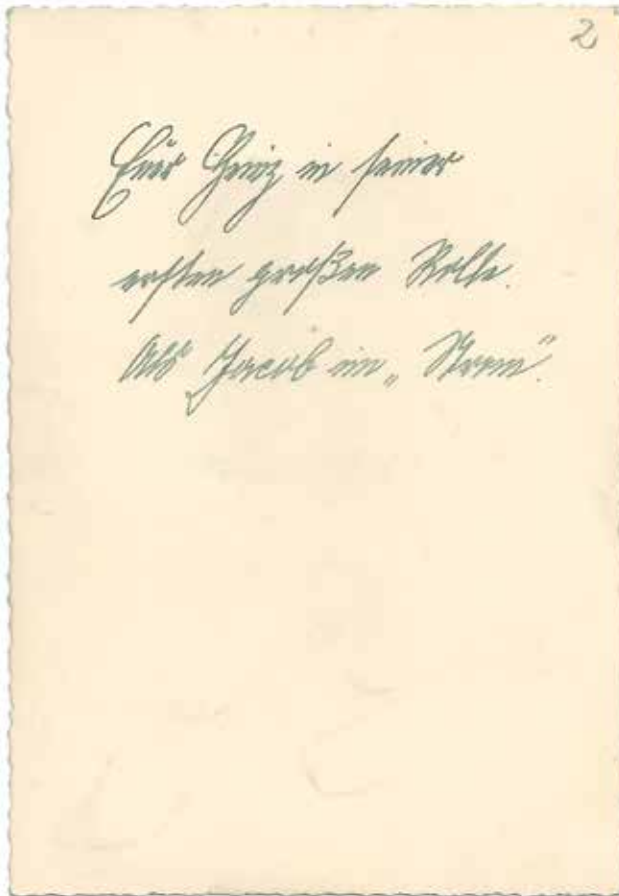 2
Euer Heinz in seiner
ersten großen Rolle.
Als Jacob im „Strom“.